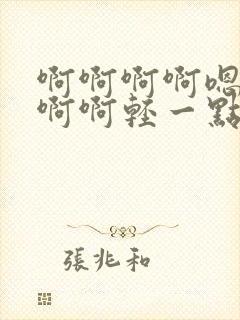 啊啊啊啊嗯
啊啊輕一點
張兆和